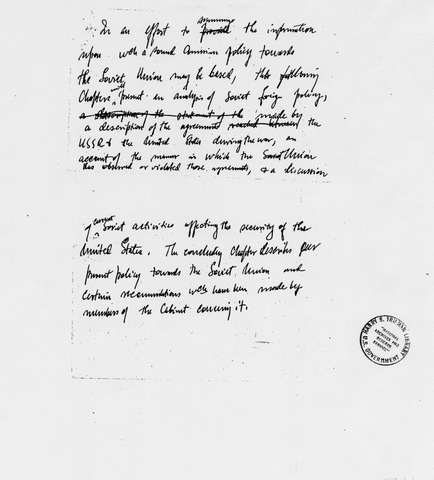 summarize
In an effort to provide the information
upon wch a sound American policy towards
the Soviet Union may be based, the following
will
Chapters present an analysis of Soviet foreign policy,
a description of the statement of the made by
a description of the agreements reached between the
USSR & the United States during the war, an
account of the manner in which the Soviet Union
has observed or violated those agreements, & a discussion
current
of Soviet activities affecting the security of the
United States. The concluding chapter describes our
present policy towards the Soviet Union and
certain recommendations wch have been made by
members of the Cabinet concerning it.
HARRY S. TRUMAN LIBRARY
"NATIONAL
ARCHIVES AND
RECORDS
SERVICE"
U.S. GOVERNMENT